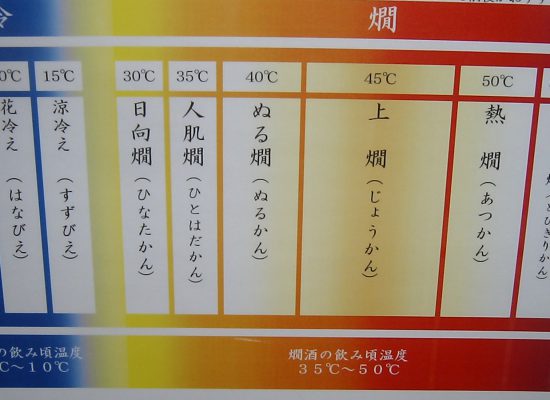 冷
燗
0℃ 15℃ 30℃ 35℃ 40℃ 45℃ 50℃
花冷え（はなびえ）
涼冷え（すずびえ）
日向燗（ひなたかん）
人肌燗（ひとはだかん）
ぬる燗（ぬるかん）
上燗（じょうかん）
熱燗（あつかん）
の飲み頃温度
℃～10℃
燗酒の飲み頃温度
35℃～50℃